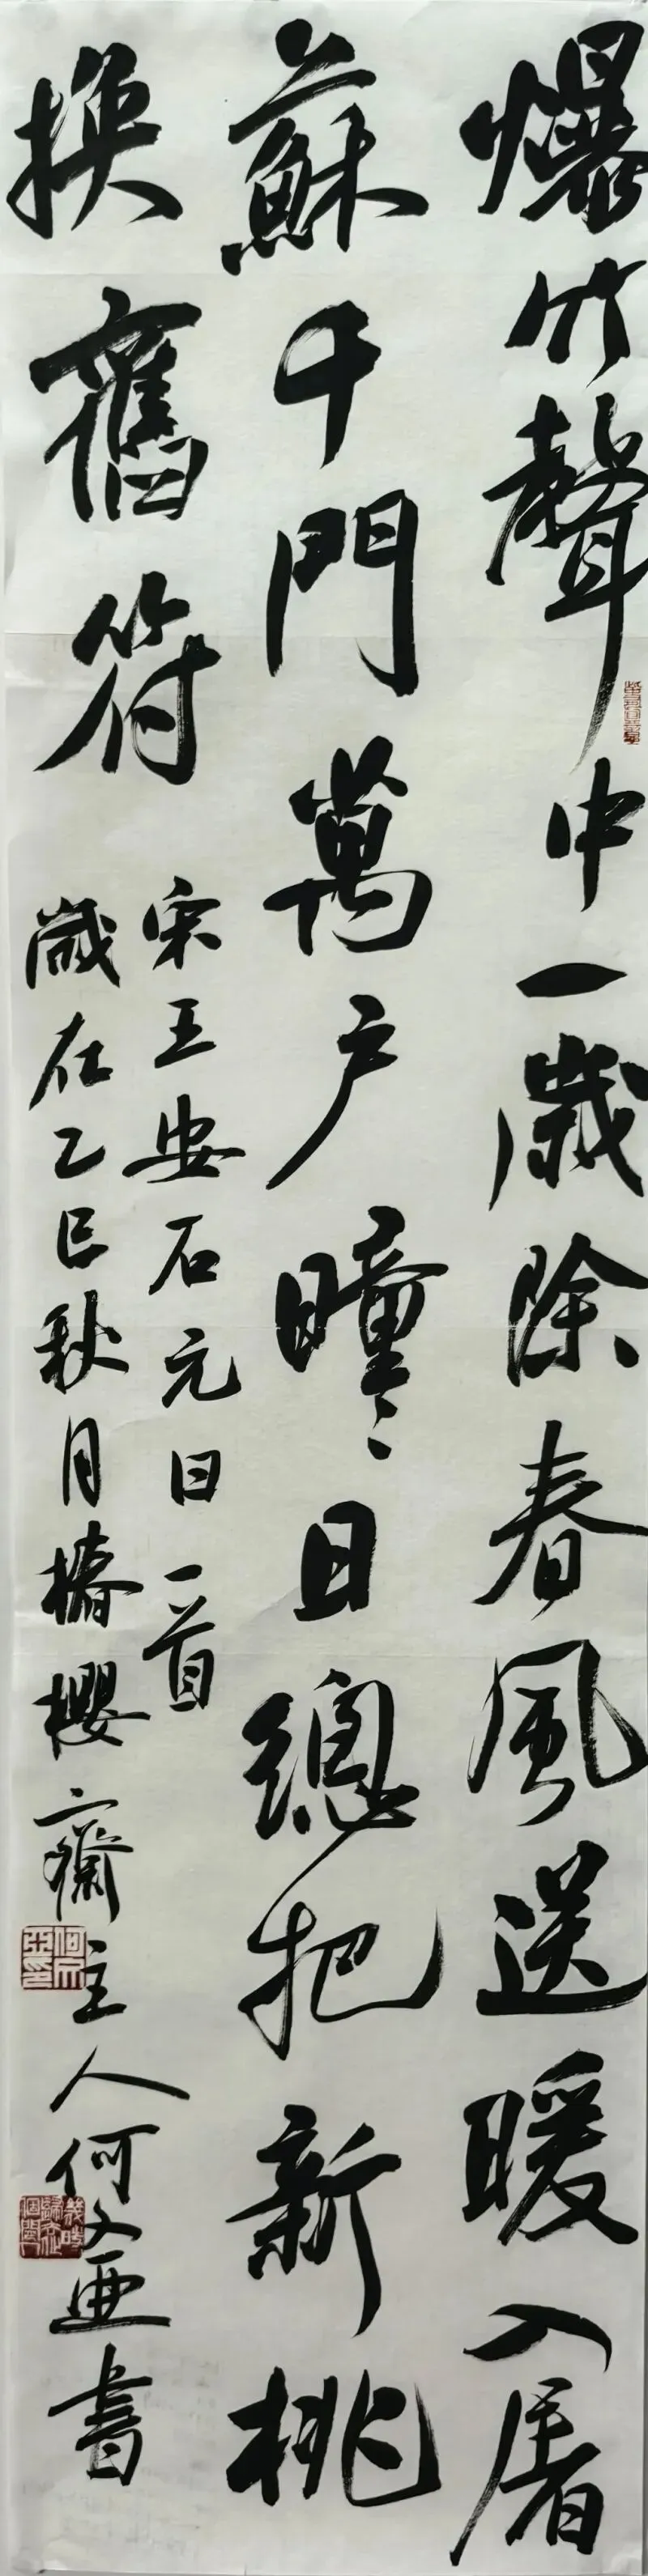 爆竹聲中一歲除春風送暖入屠
蘇千門萬户曈〻日總把新桃
換舊符
宋王安石元日一首
歲在乙巳秋月櫻齋主人何文亜書